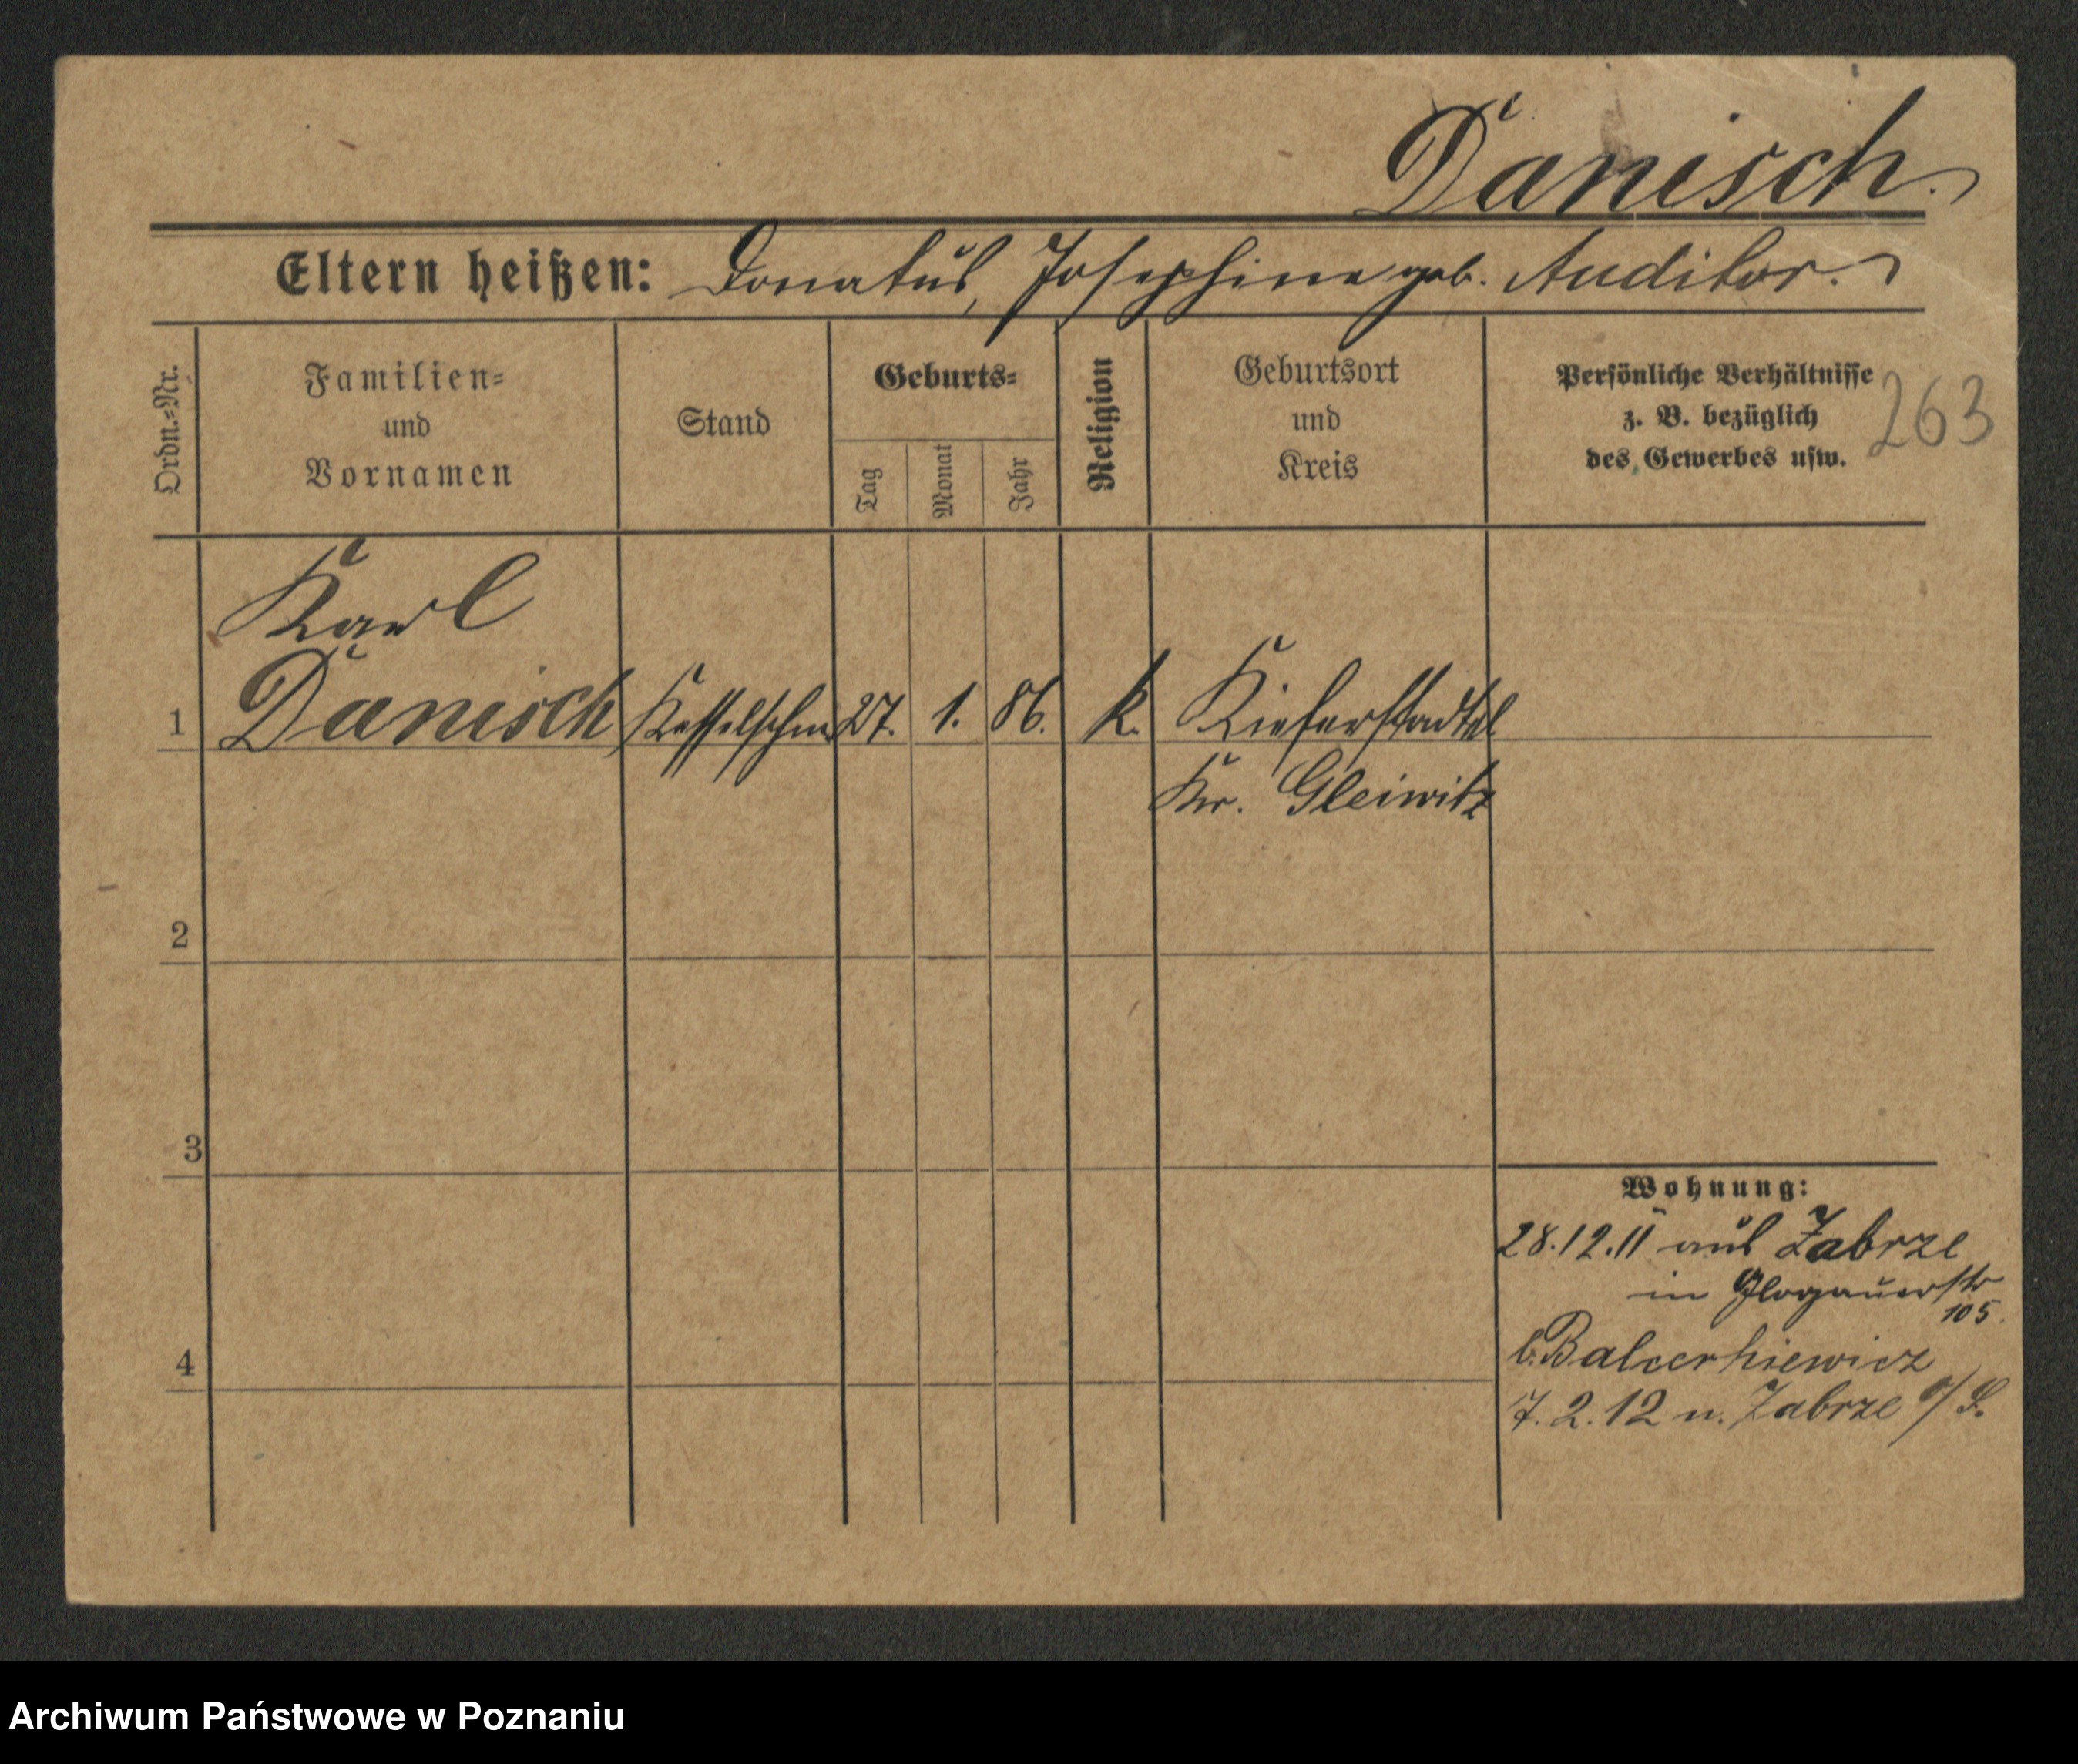 Danisch.
Eltern heißen: Donatus, Josephine geb. Auditor.
Ordn.=Nr.
Familien=
und
Vornamen
Stand
Geburts=
Tag
Monat
Jahr
Religion
Geburtsort
und
Kreis
Persönliche Verhältnisse
z. B. bezüglich
des Gewerbes usw.
263
Karl
1 Danisch Kesselschm 27. 1. 86. k. Kieferstädtel
Kr. Gleiwitz
2
3
4
Wohnung:
28.12.11 aus Zabrze
in Glogauerstr
105.
b. Balcerkiewicz
7. 2. 12 n. Zabrze o/S.
Archiwum Państwowe w Poznaniu